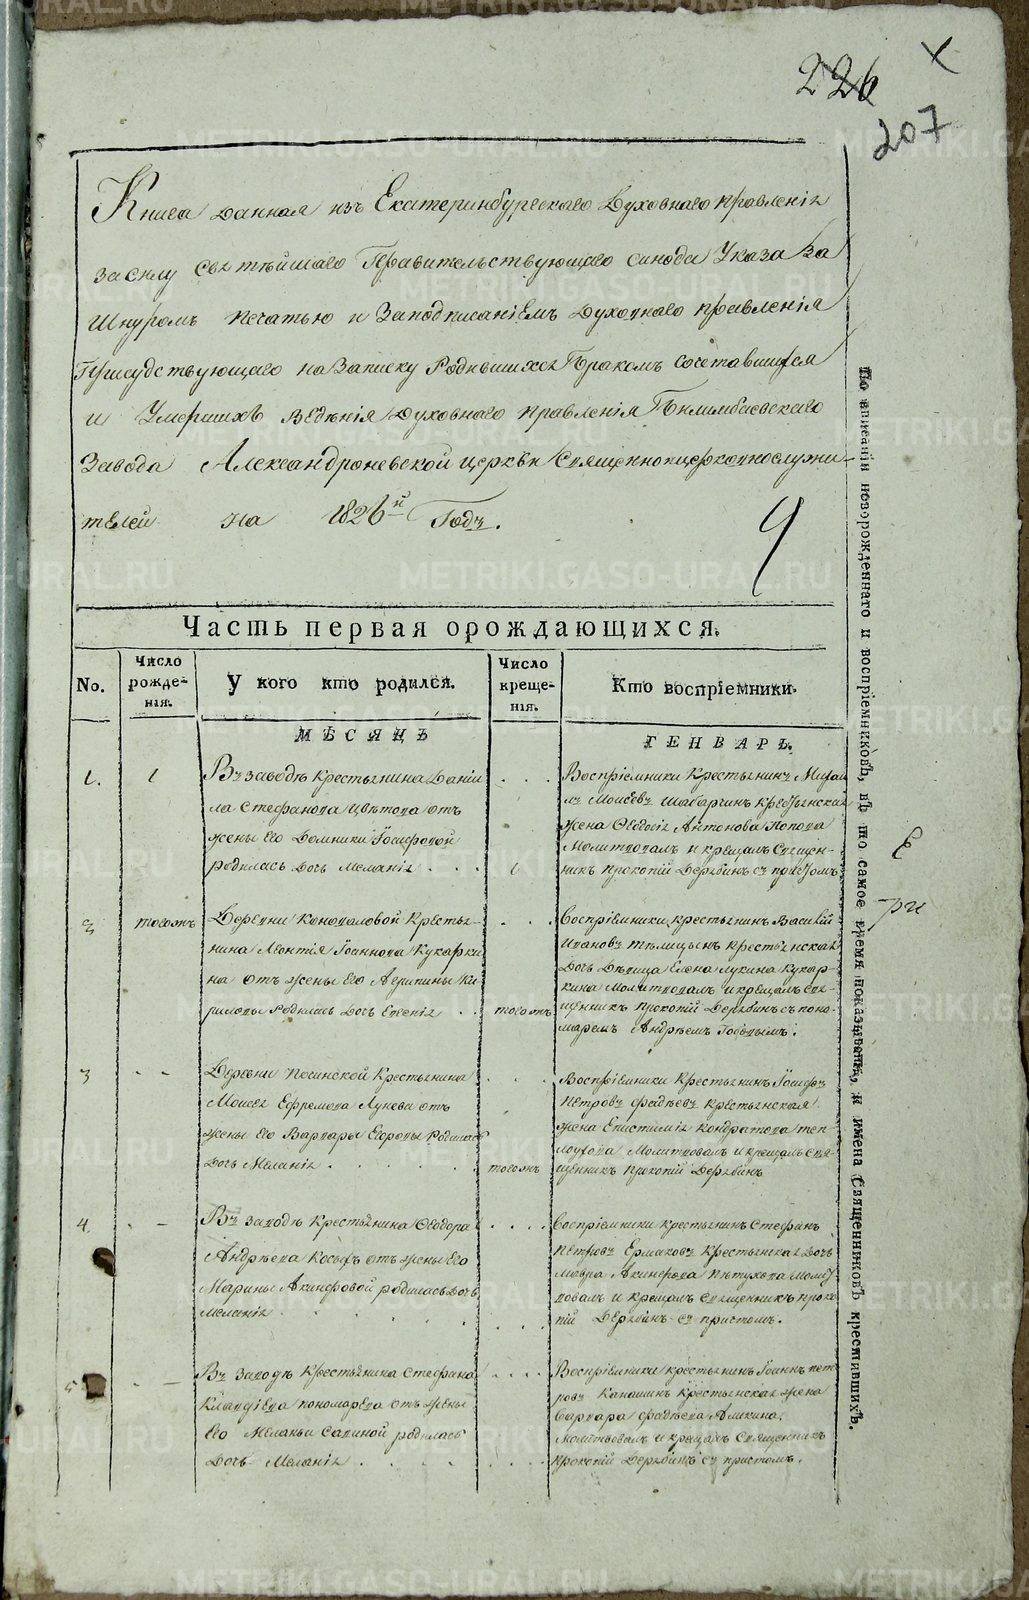 226
207
Книга данная изъ Екатеринбургскаго Духовнаго правленія
Всилу святѣйшаго Правительствующаго синода Указа За
Шнуромъ печатью и Заподписаніемъ Духовнаго правленія
Присудствующаго на Записку Родившихся Бракомъ сочетавшихся
и Умершихъ вѣденія Духовнаго правленія Билимбаевскаго
Завода Александроневской церкви Священноицерковнослужи-
телей на 1826й Годъ.
Часть первая орождающихся.
No.
Число рожденія.
У кого кто родился.
Число крещенія.
Кто воспріемники.
МѢСЯЦЪ
ГЕНВАРЬ.
1. 1 Въ заводѣ крестьянина Дании
ла Стефанова Цвѣтова отъ
жены Его Домники Іосифовой
родилась Дочь Меланія . . .
1
Воспріемники Крестьянинъ Михаи
лъ Моисѣевъ Шабарчинъ крестьянская
жена Феодосія Антонова Попова
Молитвовалъ и крещалъ Священ-
никъ прокопій Дерябинъ съ причтомъ
2 тогожъ Деревни Коноваловой Крестья-
нина Леонтія Іоаннова Кукарки
на отъ жены Его Агрипины Ки
риловы Родилась Дочь Евгенія . .
тогожъ
Воспріемники крестьянинъ Василій
Ивановъ крестьянская
Дочь Дѣвица Елена Лукина Кукар-
кина Молитвовалъ и крещалъ свя-
щенникъ прокопій Дерябинъ съ поно-
маремъ Андрѣемъ
3 Деревни Крестьянина
Моисея Ефремова Лунева отъ
жены Его Варвары Егоровы Родилась
Дочь Меланія . . . . .
тогожъ
Воспріемники Крестьянинъ Іосифъ
Петровъ Фадѣевъ Крестьянская
жена Епистимія Кондратова теп-
лоухова Молитвовалъ и крещалъ Свя-
щенникъ прокопій Дерябинъ
4. Въ заводѣ Крестьянина Феодора
Андрѣева отъ жены Его
Марины Акинфовой родилась Дочь
Меланія . . . . .
Воспріемники крестьянинъ Стефанъ
Петровъ Ермаковъ Крестьянская Дочь
Мавра Акинфова Пѣтухова Молит
вовалъ и крещалъ Священникъ проко
пій Дерябинъ съ причтомъ.
5 Въ Заводѣ Крестьянина Стефана
Клавдіева пономарева отъ жены
Его Меланьи Савиной родилась
Дочь Меланія . . . . .
Воспріемники крестьянинъ Іоаннъ пет
ровъ Канашинъ Крестьянская жена
Варвара Фадѣева Аликина.
Молитвовалъ и крещалъ Священникъ
прокопій Дерябинъ съ причтомъ.
По вписаніи новорожденнаго и воспріемниковъ, въ то самое время показывать, и имена Священниковъ крестившихъ.
METRIKI.GASO-URAL.RU